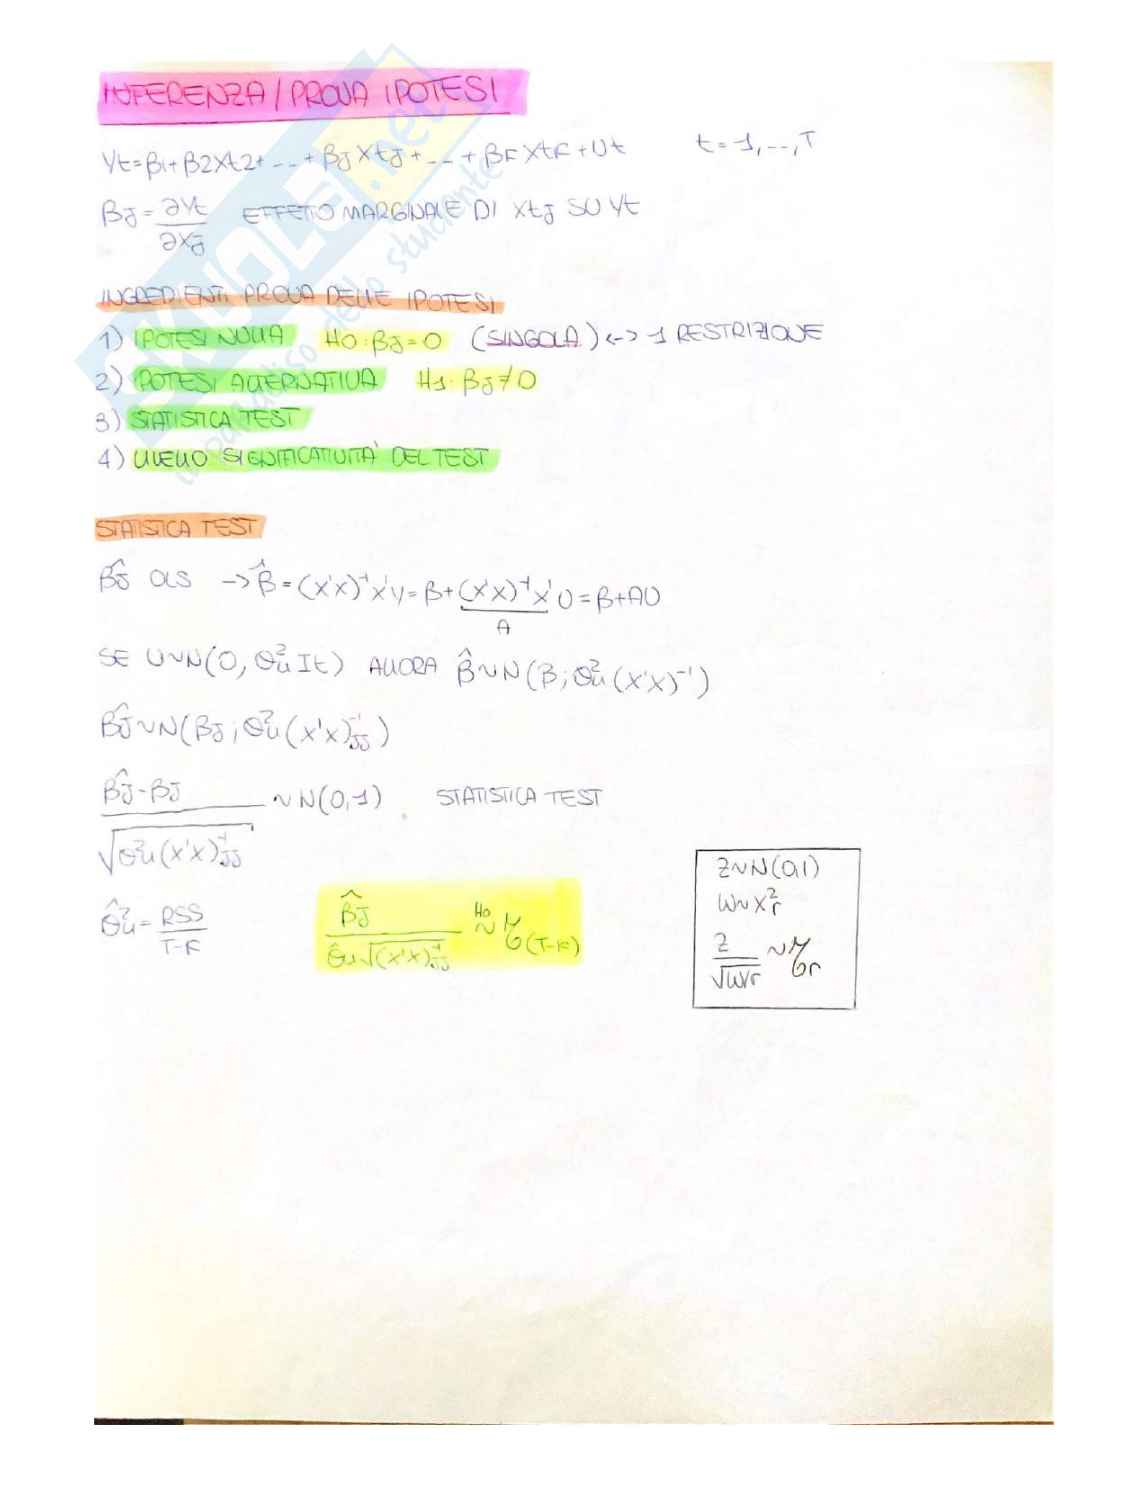 INFERENZA / PROVA IPOTESI
Yt = β1 + β2Xt2 + --- + βJXtJ + --- + βKXtK + Ut t = 1, ---, T
βJ = ∂Yt / ∂XJ EFFETTO MARGINALE DI XtJ SU Yt
INGREDIENTI PROVA DELLE IPOTESI
1) IPOTESI NULLA H0: βJ = 0 (SINGOLA) <-> 1 RESTRIZIONE
2) IPOTESI ALTERNATIVA H1: βJ ≠ 0
3) STATISTICA TEST
4) LIVELLO SIGNIFICATIVITÀ DEL TEST
STATISTICA TEST
β̂J OLS -> β̂ = (X'X)⁻¹X'Y = β + (X'X)⁻¹X'U = β + AU
A
SE U~N(0, σ²u It) ALLORA β̂~N(β; σ²u (X'X)⁻¹)
β̂J~N(βJ; σ²u (X'X)⁻¹JJ)
β̂J - βJ / √σ²u(X'X)⁻¹JJ ~ N(0,1) STATISTICA TEST
σ̂²u = RSS / T-K
β̂J / σ̂u√(X'X)⁻¹JJ H0 ~ t(T-K)
Z~N(0,1)
W~X²r
Z / √W/r ~ tr
SKUOLA.net